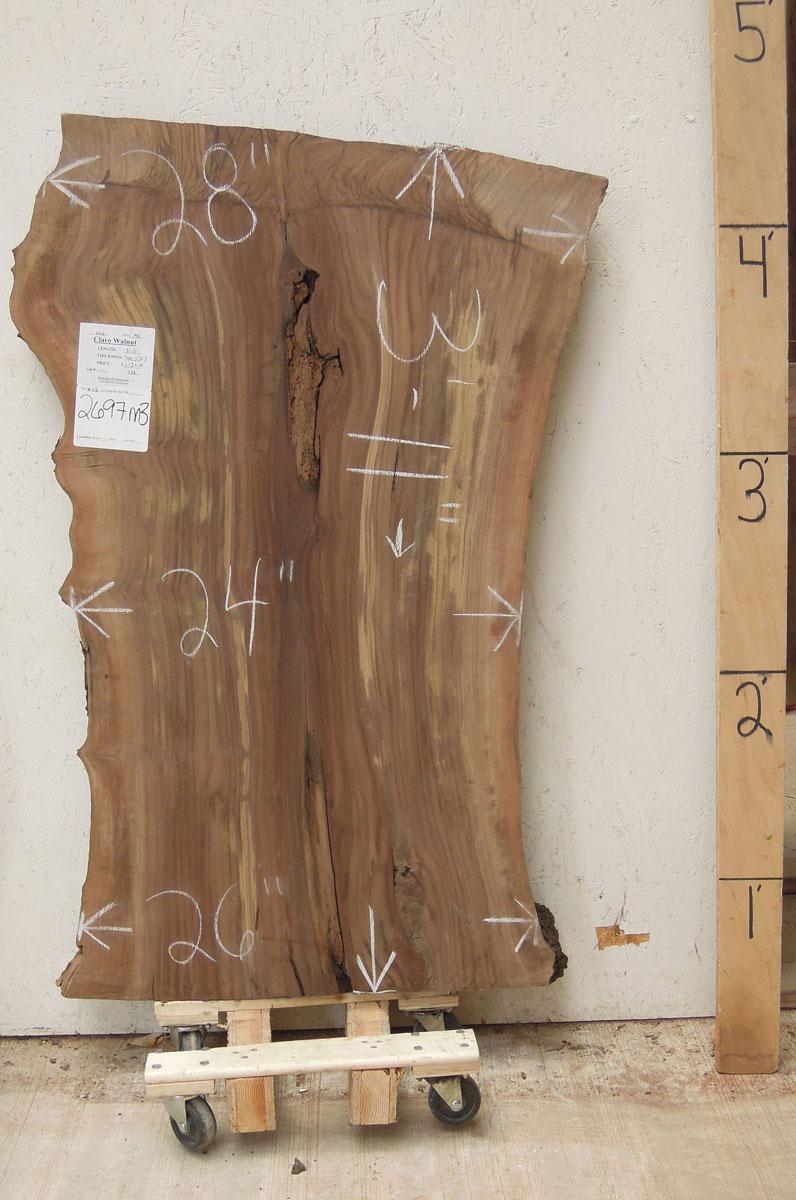 28"
3'
11"
24"
26"
Claro Walnut
LENGTH:
THICKNESS:
PRICE:
2697MB
5'
4'
3'
2'
1'